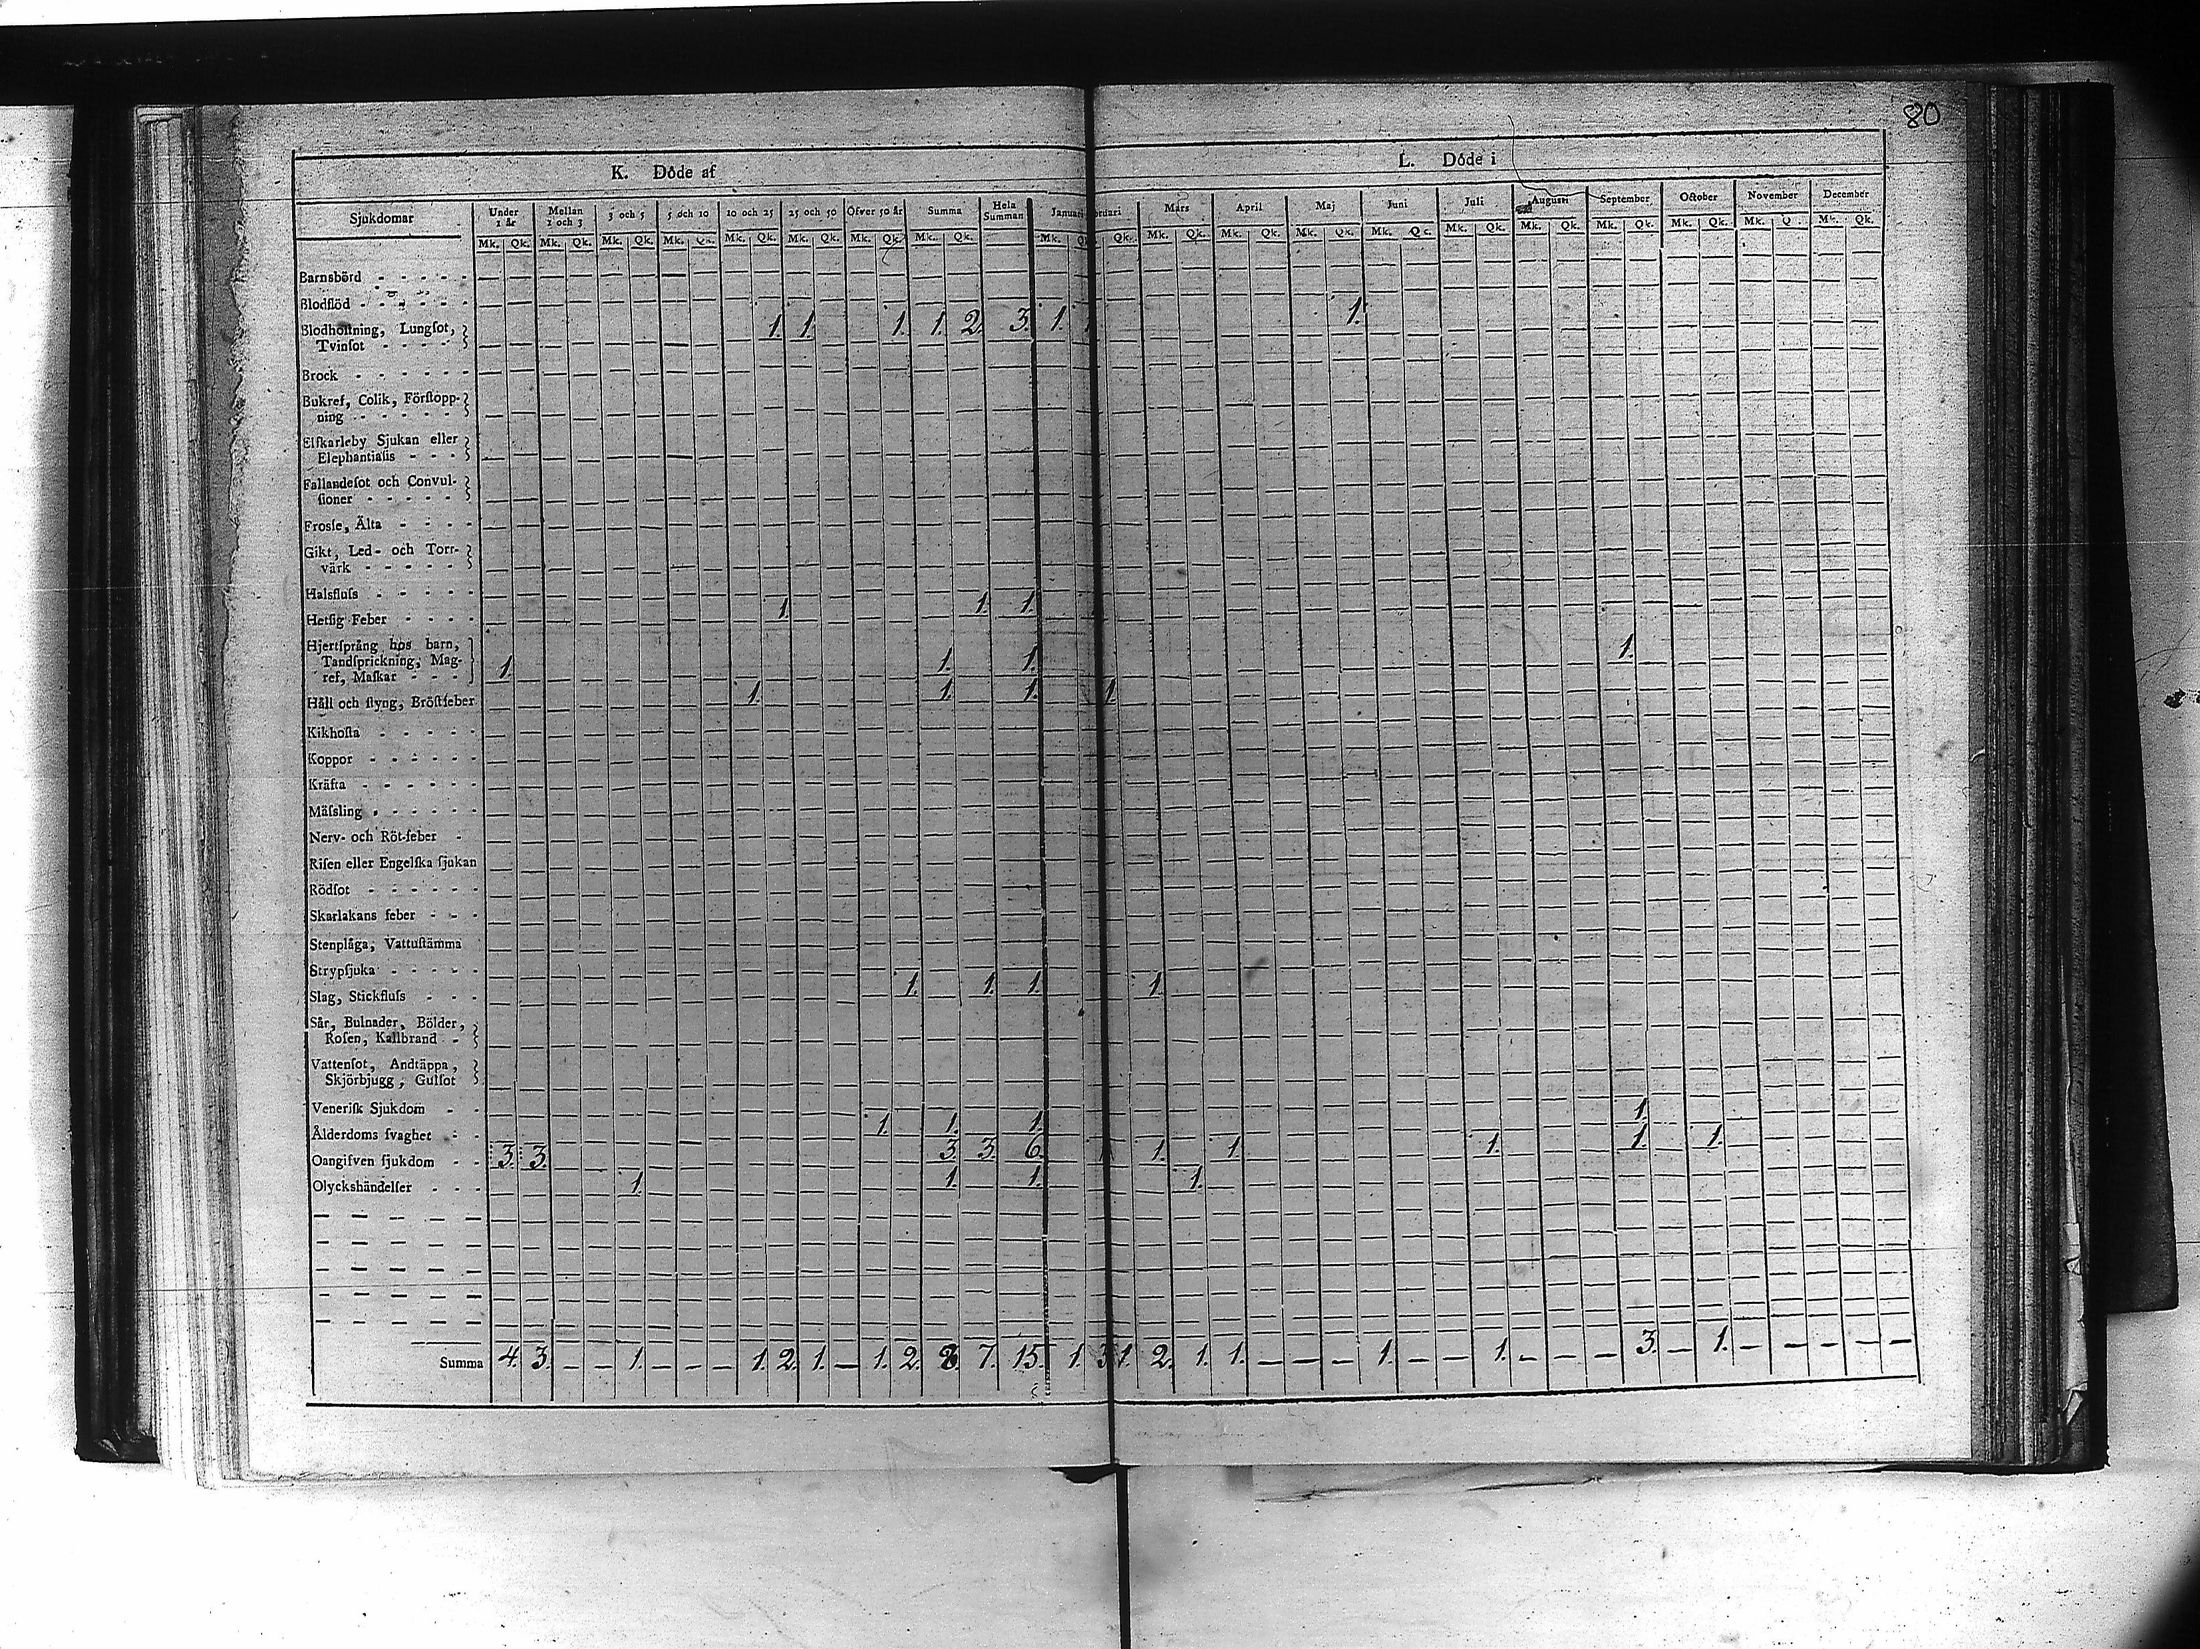 80
K. Döde af
L. Döde i
Sjukdomar Under 1 år Mellan 1 och 3 3 och 5 5 och 10 10 och 25 25 och 50 Öfver 50 år Summa Hela Summan Januari Mars April Maj Juni Juli Augusti September October November December
Mk. Qk. Mk. Qk. Mk. Qk. Mk. Qk. Mk. Qk. Mk. Qk. Mk. Qk. Mk. Qk. Mk. Qk. Mk. Qk. Mk. Qk. Mk. Qk. Mk. Qk. Mk. Qk. Mk. Qk. Mk. Qk. Mk. Qk. Mk. Q Mk. Qk.
Barnsbörd - - - - -
Blodflöd - - - - -
Blodhostning, Lungsot, 1. 1. 1. 1. 2. 3. 1. 1.
Tvinsot - - - -
Brock - - - - - -
Bukref, Colik, Förstopp-
ning - - - - -
Elfkarleby Sjukan eller
Elephantiasis - - -
Fallandesot och Convul-
sioner - - - - -
Frosse, Älta - - - -
Gikt, Led- och Torr-
värk - - - - -
Halsfluss - - - - -
Hetsig Feber - - - - 1. 1. 1.
Hjertsprång hos barn,
Tandsprickning, Mag- 1. 1. 1. 1.
ref, Maskar - - -
Håll och styng, Bröstfeber 1. 1. 1. 1.
Kikhosta - - - - -
Koppor - - - - - -
Kräfta - - - - - -
Mässling - - - - - -
Nerv- och Röt-feber -
Risen eller Engelska sjukan
Rödsot - - - - - -
Skarlakans feber - - -
Stenplåga, Vattustämma
Strypsjuka - - - - -
Slag, Stickfluss - - - 1. 1. 1. 1.
Sår, Bulnader, Bölder,
Rosen, Kallbrand -
Vattensot, Andtäppa,
Skjörbjugg, Gulsot
Venerisk Sjukdom - -
Ålderdoms svaghet - - 1. 1. 1. 1.
Oangifven sjukdom - - 3. 3. 3. 3. 6. 1. 1. 1. 1. 1.
Olyckshändelser - - - 1. 1. 1. 1.
Summa 4. 3. — — 1. — — — 1. 2. 1. — 1. 2. 8. 7. 15. 1. 3. 1. 2. 1. 1. — — — 1. — — 1. — — — 3. — 1. — — — — —